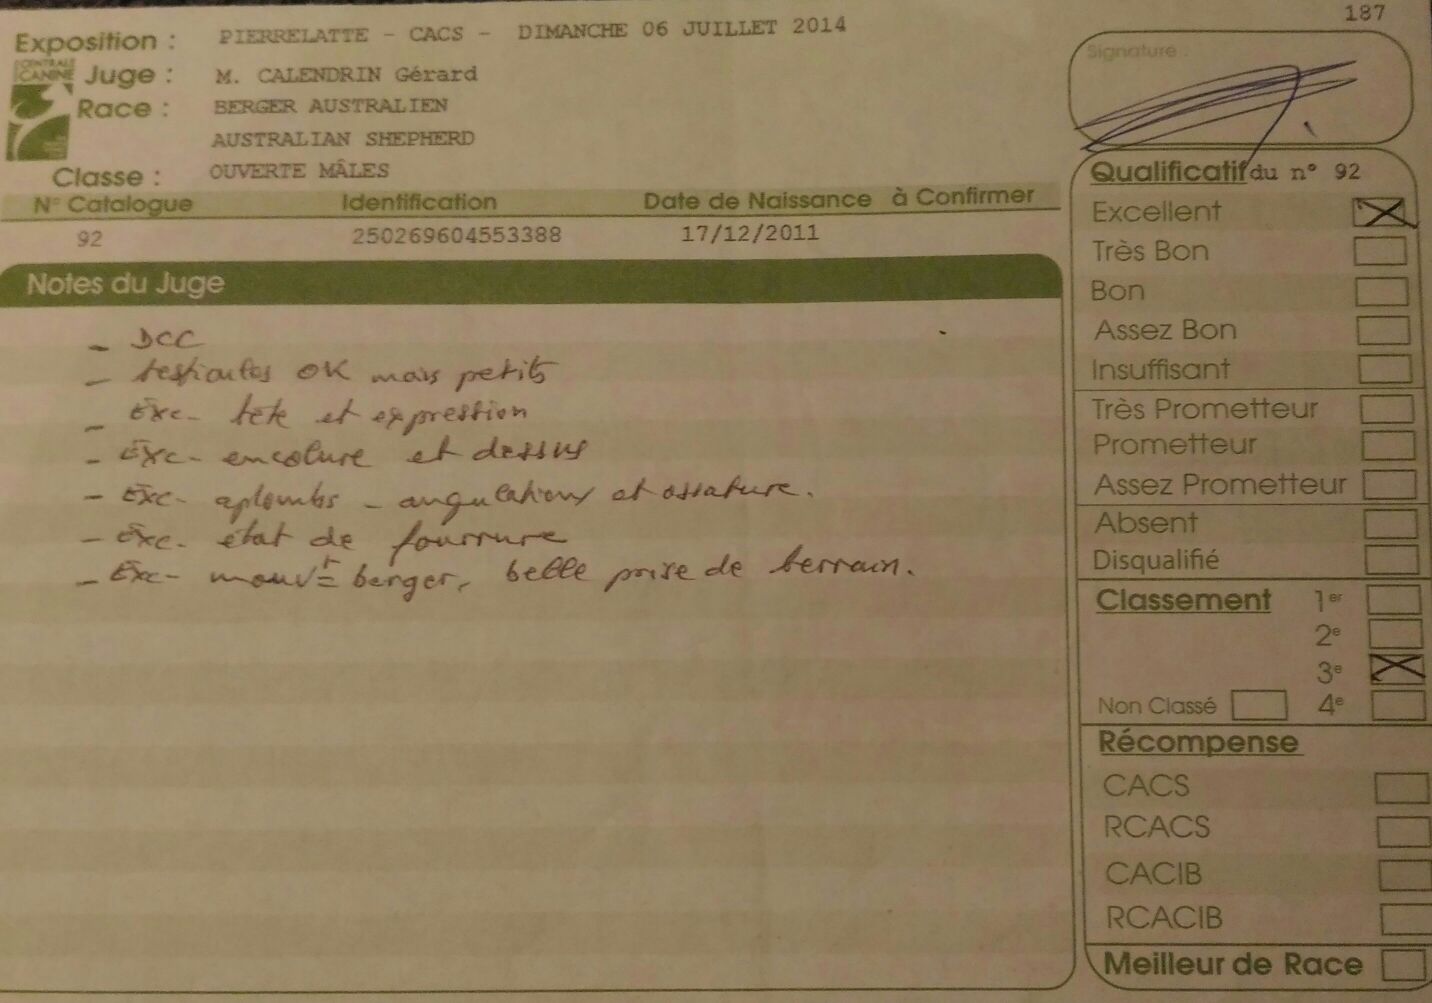 187
Exposition : PIERRELATTE - CACS - DIMANCHE 06 JUILLET 2014
CENTRALE
CANINE
Juge : M. CALENDRIN Gérard
Race : BERGER AUSTRALIEN
AUSTRALIAN SHEPHERD
Classe : OUVERTE MÂLES
N° Catalogue Identification Date de Naissance à Confirmer
92 250269604553388 17/12/2011
Notes du Juge
- DCC
- testicules OK mais petits
- Exc- tête et expression
- Exc- encolure et dessus
- Exc- aplombs - angulations et ossature.
- Exc- état de fourrure
- Exc- mouvt berger, belle prise de terrain.
Signature :
Qualificatif du n° 92
Excellent
Très Bon
Bon
Assez Bon
Insuffisant
Très Prometteur
Prometteur
Assez Prometteur
Absent
Disqualifié
Classement 1er
2e
3e
Non Classé 4e
Récompense
CACS
RCACS
CACIB
RCACIB
Meilleur de Race